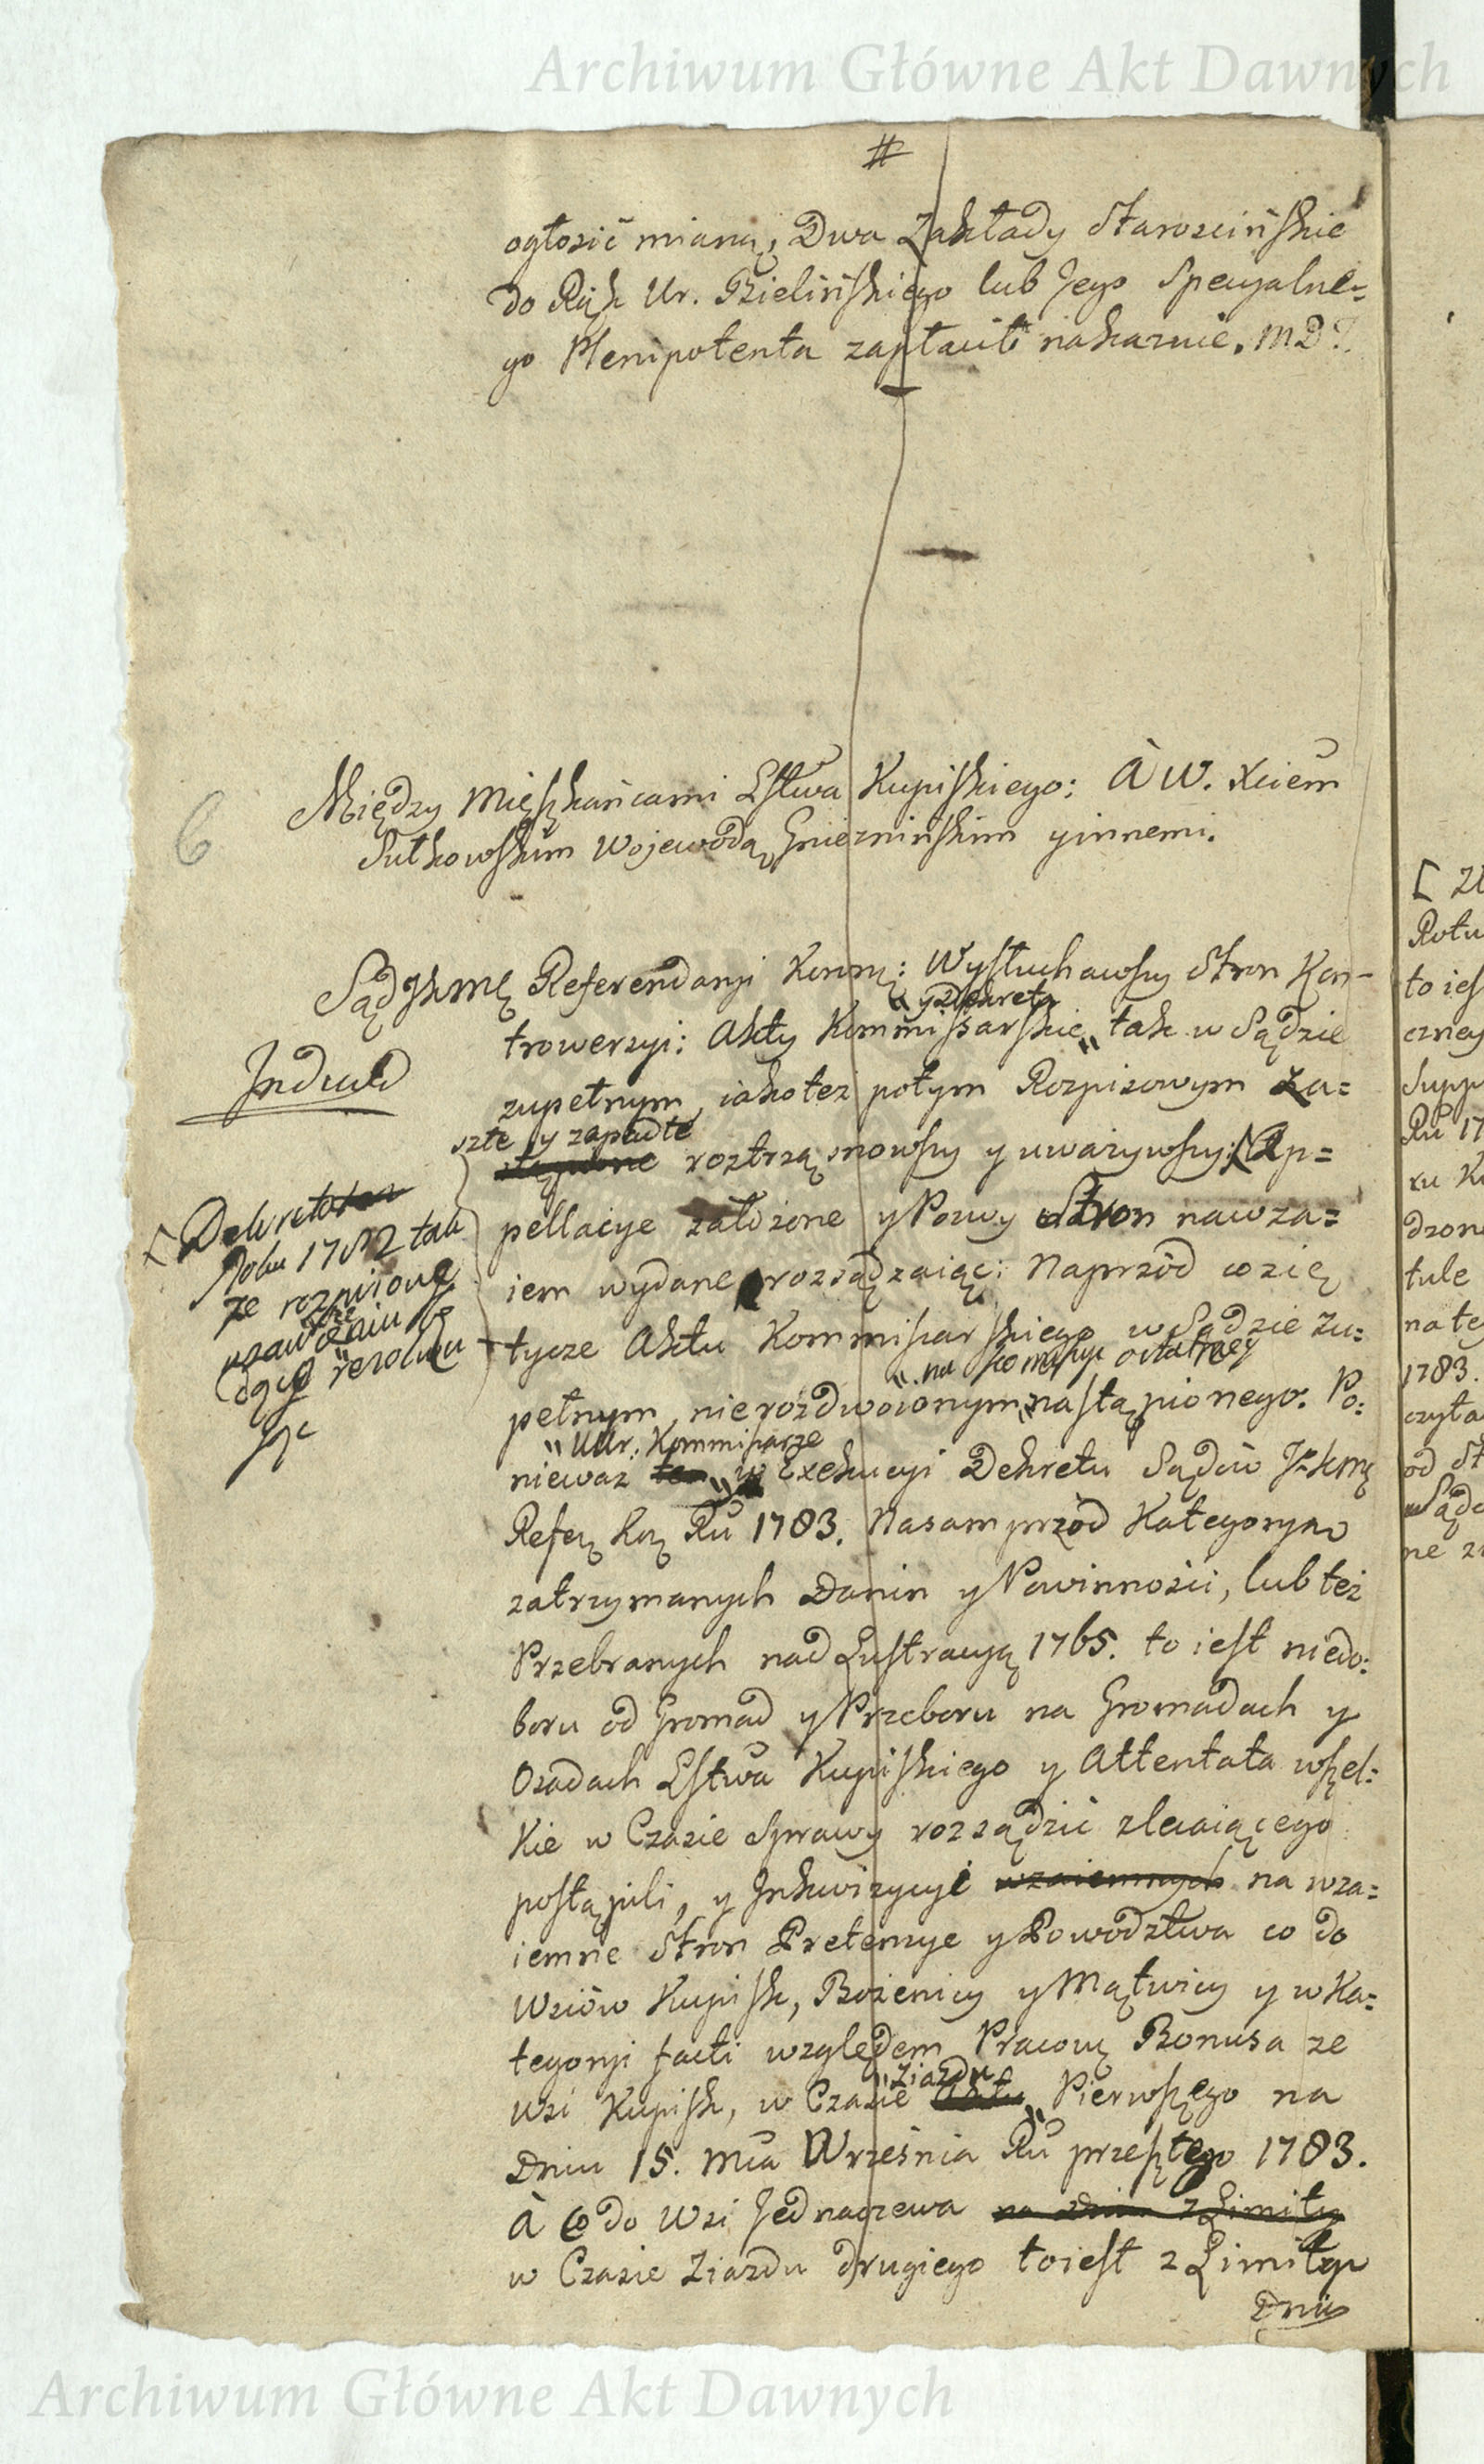 Archiwum Główne Akt Dawnych
#
ogłosić mianą, Dwa Zakłady Starościńskie
do Rąk Ur. Bielińskiego lub Jego Specyalne=
go Plenipotenta zapłacić nakazuie. M D
6
Między Mięszkańcami Lstwa Kupiskiego: à W. Xciem
Sułkowskim Wojewodą Gnieznińskim y innemi.
Sąd JKMę Referendarji Koroną: Wysłuchawszy Stron Kon-
y Dekreta
trowersyi: Akty Kommissarskie tak w Sądzie
Induct
zupełnym, iako też potym Rozpisowym Za=
szłe y zapadłe
roztrząsnowszy y uważywszy: Ap=
pellacye założone y Pozwy Stron nawza=
iem wydane rozsądzaiąc: Naprzód co się
tycze Aktu Kommisarskiego w Sądzie Zu:
na kompuł ostatniey
pełnym, nierozdwoionym nastąpionego. Po:
UUr. Kommisarze
nieważ w Exekucyi Dekretu Sądów JKMę
Refer. Kor. Ru 1783. Nasamprzód Kategoryą
zatrzymanych Danin y Powinności, lub też
Przebranych nad Lustracyą 1765. to iest niedo:
boru od Gromad y Przeboru na Gromadach y
Osadach Lstwa Kupiskiego y Attentata wszel:
kie w Czasie Sprawy rozsądzić zlecaiącego
postąpili, y Inkwizycye wzaiemnych na wza:
iemne Stron Pretensye y Powodztwa co do
Wsiów Kupisk, Bożenicy y Mątwicy y w Ka:
tegoryi facti względem Pracowę Bonusa ze
Ziazdu
wsi Kupisk, w Czasie Aktu Pierwszego na
Dniu 15. Mca Września Ru przeszłego 1783.
à Co do Wsi Jednaczewa na Dniu z Limity
w Czasie Ziazdu drugiego to iest z Limity
Dniu
Dekretowa
Roku 1782 tak
że rozpisowę
Archiwum Główne Akt Dawnych